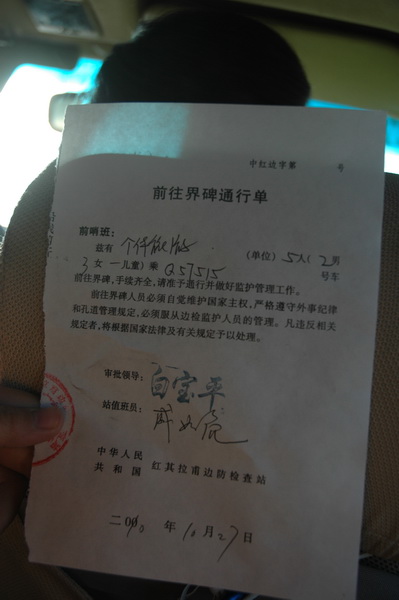 中红边字第 号
前往界碑通行单
前哨班：
兹有 个体旅游 (单位) 5人( 2男
3女 一儿童) 乘 Q57515 号车
前往界碑,手续齐全,请准予通行并做好监护管理工作。
前往界碑人员必须自觉维护国家主权,严格遵守外事纪律
和孔道管理规定,必须服从边检监护人员的管理。凡违反相关
规定者,将根据国家法律及有关规定予以处理。
审批领导: 白宝平
站值班员:
中华人民
共和国 红其拉甫边防检查站
二00 年 10月27日